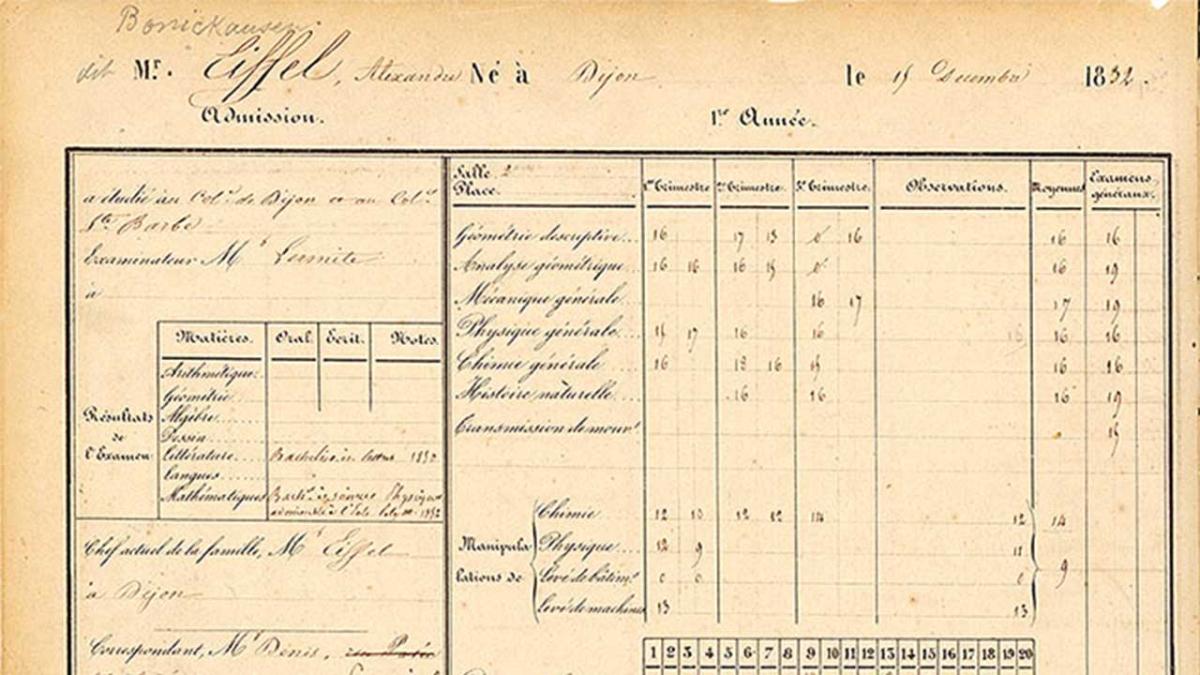 Bonickausen
dit Mr. Eiffel, Alexandre Né à Dijon le 15 Decembre 1832.
Admission.
1re Année.
a étudié au Col. de Dijon et au Col.
Ste Barbe
Examinateur Mr
à
Matières. Oral. Ecrit. Notes.
Résultats de l'Examen
Arithmétique
Géométrie
Algèbre
Dessin
Littérature
Langues
Mathématiques
Chef actuel de la famille, Mr Eiffel
à Dijon
Correspondant, Mr Denis,
Salle 2
Place.
1er Trimestre. 2e Trimestre. 3e Trimestre. Observations. Moyennes Examens généraux.
Géométrie descriptive 16 17 13 0 16 16 16
Analyse géométrique 16 16 16 15 0 16 19
Mécanique générale 16 17 17 19
Physique générale 15 17 16 16 16 16
Chimie générale 16 18 16 15 16 16
Histoire naturelle 16 16 16 19
Transmission de mouvt 15
Manipulations de
Chimie 12 10 12 12 14 12 14
Physique 12 9 11
Levé de bâtimt 0 0 0 9
Levé de machines 13 13
1 2 3 4 5 6 7 8 9 10 11 12 13 14 15 16 17 18 19 20